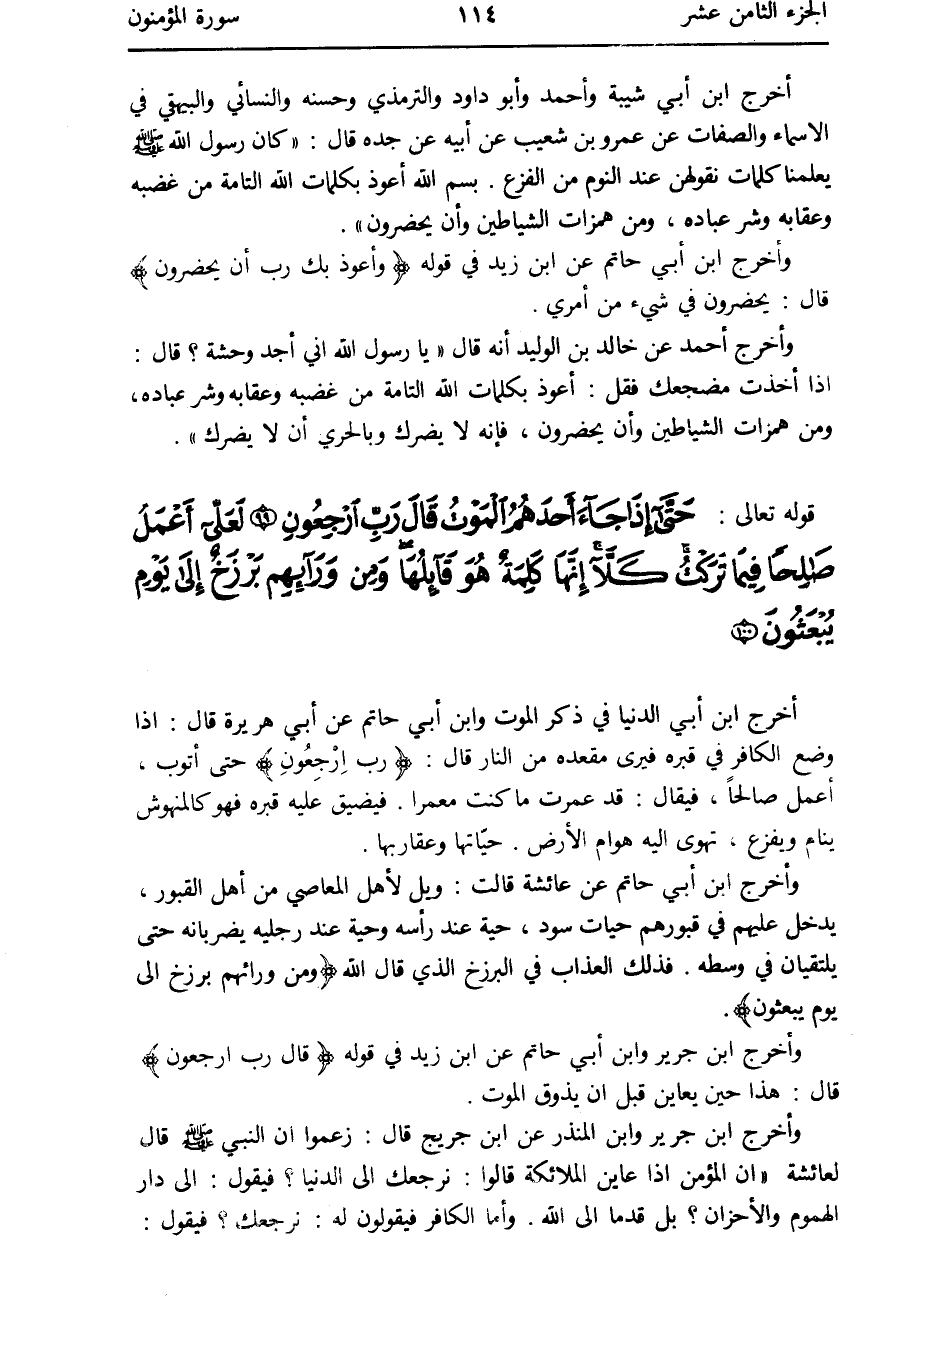 الجزء الثامن عشر ١١٤ سورة المؤمنون
أخرج ابن أبي شيبة وأحمد وأبو داود والترمذي وحسنه والنسائي والبيهقي في
الاسماء والصفات عن عمرو بن شعيب عن أبيه عن جده قال : « كان رسول الله ﷺ
يعلمنا كلمات نقولهن عند النوم من الفزع . بسم الله أعوذ بكلمات الله التامة من غضبه
وعقابه وشر عباده ، ومن همزات الشياطين وأن يحضرون » .
وأخرج ابن أبي حاتم عن ابن زيد في قوله ﴿ وأعوذ بك رب أن يحضرون ﴾
قال : يحضرون في شيء من أمري .
وأخرج أحمد عن خالد بن الوليد أنه قال « يا رسول الله اني أجد وحشة ؟ قال :
اذا أخذت مضجعك فقل : أعوذ بكلمات الله التامة من غضبه وعقابه وشر عباده،
ومن همزات الشياطين وأن يحضرون ، فإنه لا يضرك وبالحري أن لا يضرك » .
قوله تعالى : حَتَّىٰٓ إِذَا جَآءَ أَحَدَهُمُ ٱلْمَوْتُ قَالَ رَبِّ ٱرْجِعُونِ ۝٩٩ لَعَلِّىٓ أَعْمَلُ
صَٰلِحًا فِيمَا تَرَكْتُ ۚ كَلَّآ ۚ إِنَّهَا كَلِمَةٌ هُوَ قَآئِلُهَا ۖ وَمِن وَرَآئِهِم بَرْزَخٌ إِلَىٰ يَوْمِ
يُبْعَثُونَ ۝١٠٠
أخرج ابن أبي الدنيا في ذكر الموت وابن أبي حاتم عن أبي هريرة قال : اذا
وضع الكافر في قبره فيرى مقعده من النار قال : ﴿ رب اِرْجِعُونِ ﴾ حتى أتوب ،
أعمل صالحاً ، فيقال : قد عمرت ما كنت معمرا . فيضيق عليه قبره فهو كالمنهوش
ينام ويفزع ، تهوى اليه هوام الأرض . حيّاتها وعقاربها .
وأخرج ابن أبي حاتم عن عائشة قالت : ويل لأهل المعاصي من أهل القبور ،
يدخل عليهم في قبورهم حيات سود ، حية عند رأسه وحية عند رجليه يضربانه حتى
يلتقيان في وسطه . فذلك العذاب في البرزخ الذي قال الله ﴿ومن ورائهم برزخ الى
يوم يبعثون﴾ .
وأخرج ابن جرير وابن أبي حاتم عن ابن زيد في قوله ﴿ قال رب ارجعون ﴾
قال : هذا حين يعاين قبل ان يذوق الموت .
وأخرج ابن جرير وابن المنذر عن ابن جريج قال : زعموا ان النبي ﷺ قال
لعائشة « ان المؤمن اذا عاين الملائكة قالوا : نرجعك الى الدنيا ؟ فيقول : الى دار
الهموم والأحزان ؟ بل قدما الى الله . وأما الكافر فيقولون له : نرجعك ؟ فيقول :